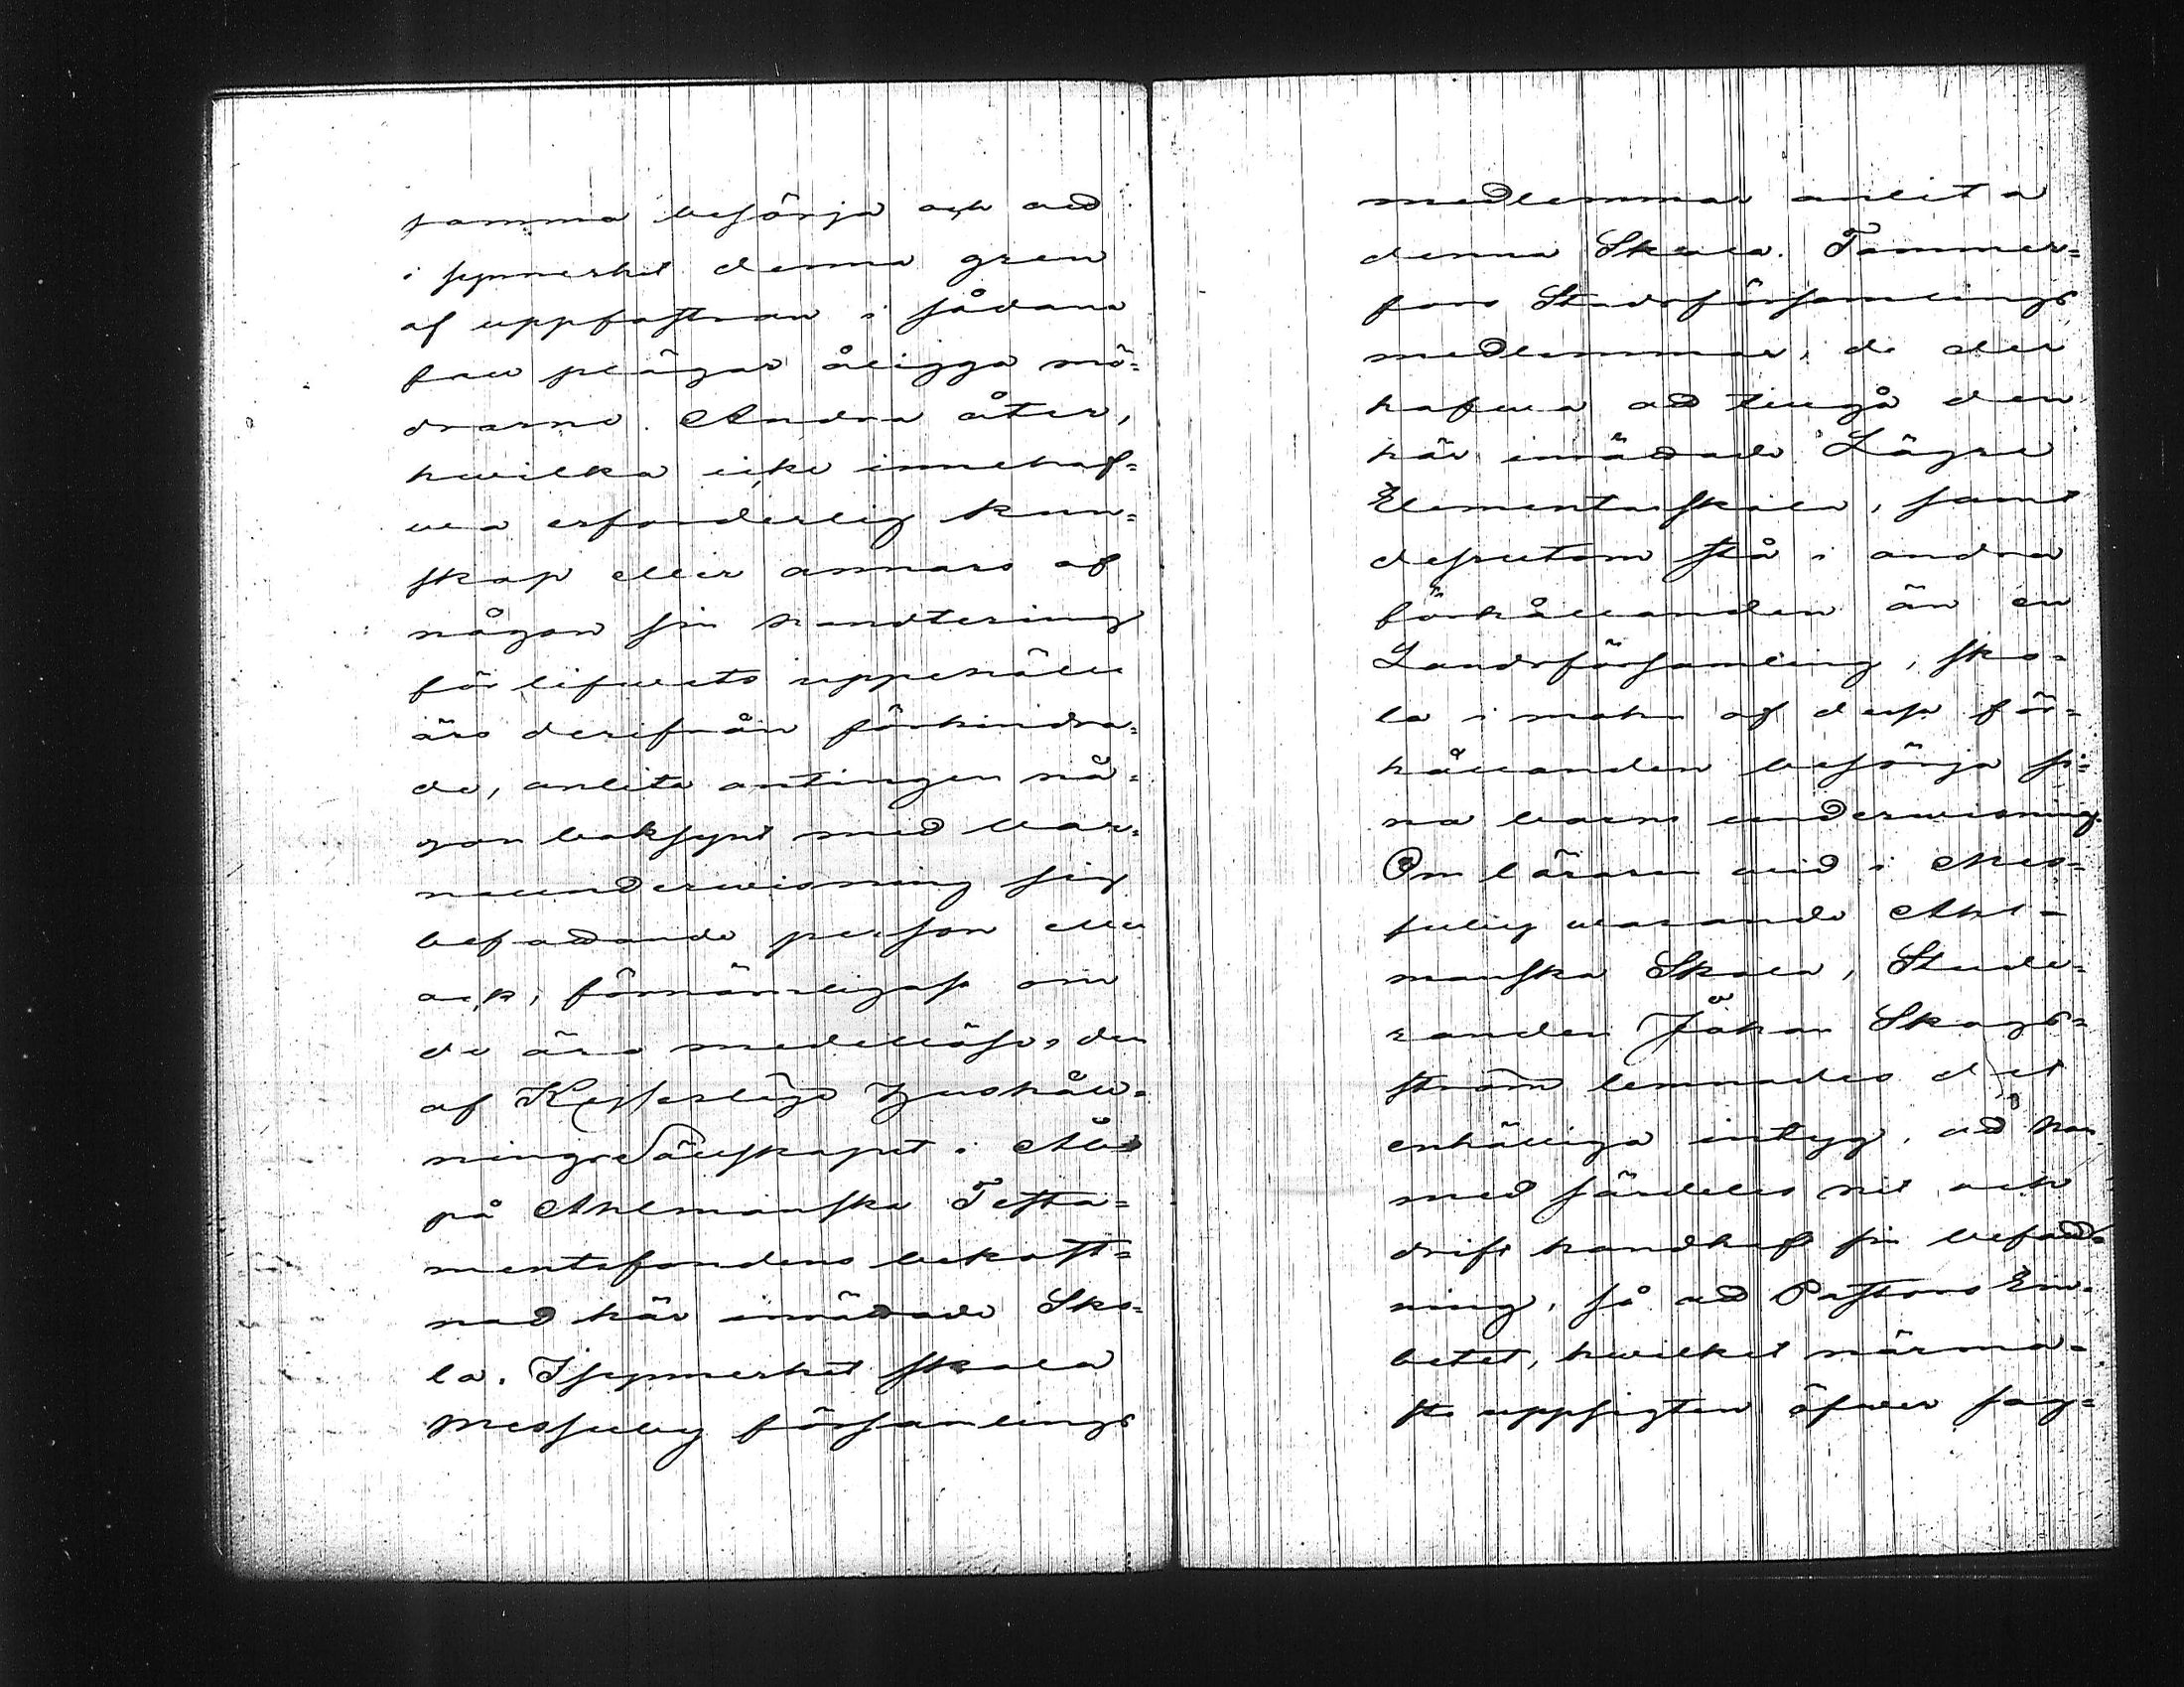 samma besörja och att
i synnerhet denna gren
af uppfostran i sådana
fall plägar åligga mö=
drarne. Andra åter,
hwilka icke innehaf=
wa erforderlig kun=
skap eller annars af
någon sin handtering
för lifwets uppehälle
äro derifrån förhindra=
de, anlita antingen nå=
gon boksynt med bar=
neunderwisning sig
befattande person eller
ock, förnämligast om
de äro medellöse, den
af Kejserliga Hushåll=
ningsSällskapet i Åbo
på Ahlmanska Testa=
mentsfondens bekost=
nad här inrättade Sko=
la. Isynnerhet skola
Messuby församlings
medlemmar anlita
denna Skola. Tammer=
fors Stadsförsamlings
medlemmar, de der
hafwa att tillgå den
här inrättade Lägre
Elementarskola, samt
dessutom stå i andra
förhållanden än en
Landsförsamling, sko=
la i mohn af dessa för=
hållanden besörja si=
na barns underwisning.
Om läraren wid i Mes=
suby warande Ahl=
manska Skola, Stude=
randen Johan Skogs=
ström lemnades det
enhälliga intyg, att han
med särdeles nit och
drift handhaft sin befatt=
ning, så att Pastors Em=
betet, hwilket närma=
ste uppsigten öfwer sag=